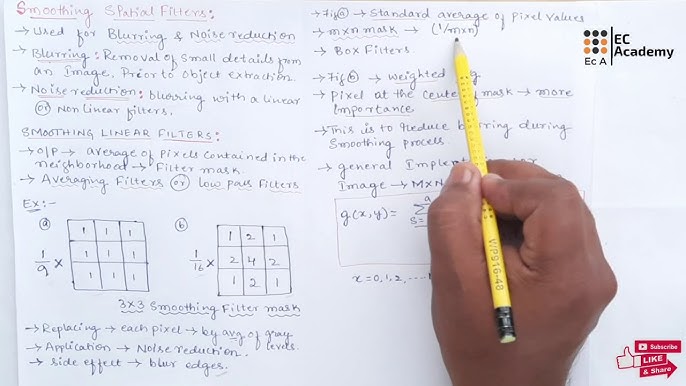 Smoothing Spatial Filters:
→ Used for Blurring & Noise reduction
→ Blurring: Removal of Small details from
an Image, Prior to Object Extraction.
→ Noise reduction: blurring with a linear
or Non linear filters.
SMOOTHING LINEAR FILTERS:
→ O/P → average of pixels contained in the
neighborhood → Filter mask.
→ Averaging Filters or low pass Filters
Ex:-
a
1/9 ×
1 1 1
1 1 1
1 1 1
b
1/16 ×
1 2 1
2 4 2
1 2 1
3×3 Smoothing Filter mask
→ Replacing → each pixel → by avg of gray
levels.
→ Application → Noise reduction.
→ side effect → blur edges.
→ Fig a → Standard average of Pixel values
→ m×n mask → (1/m×n)
→ Box Filters
→ Fig b → weighted
→ Pixel at the center mask → more
Importance
→ This is to reduce blurring during
Smoothing process.
→ general
Image → M×N
g(x,y) = Σ
x=0,1,2,
EC
Academy
Ec A
VP916-48
Subscribe
LIKE
& Share